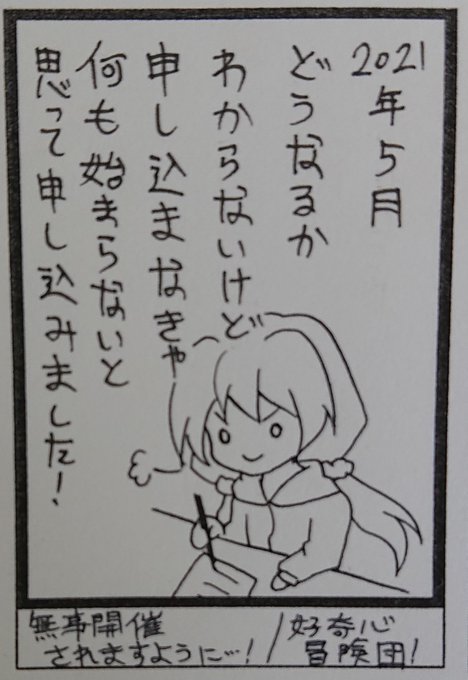 2021年5月
どうなるか
わからないけど
申し込まなきゃ
何も始まらないと
思って申し込みました！
無事開催
されますように…！
好奇心
冒険団！